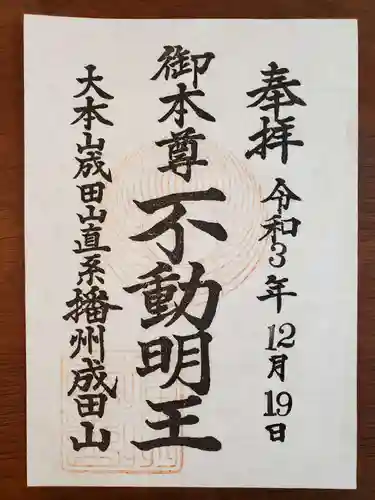 奉拝 令和3年12月19日
御本尊
不動明王
大本山成田山直系播州成田山